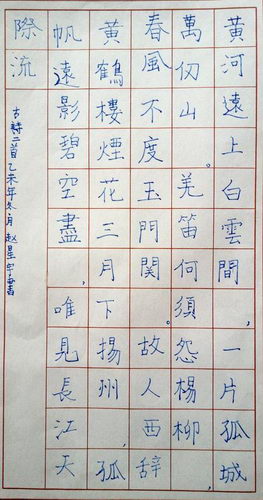 黄河遠上白雲間，一片孤城
萬仞山。羌笛何須怨楊柳，
春風不度玉門関。故人西辞
黄鶴樓煙花三月下揚州，孤
帆遠影碧空盡，唯見長江天
際流
古詩二首乙未年冬月 赵星宇書